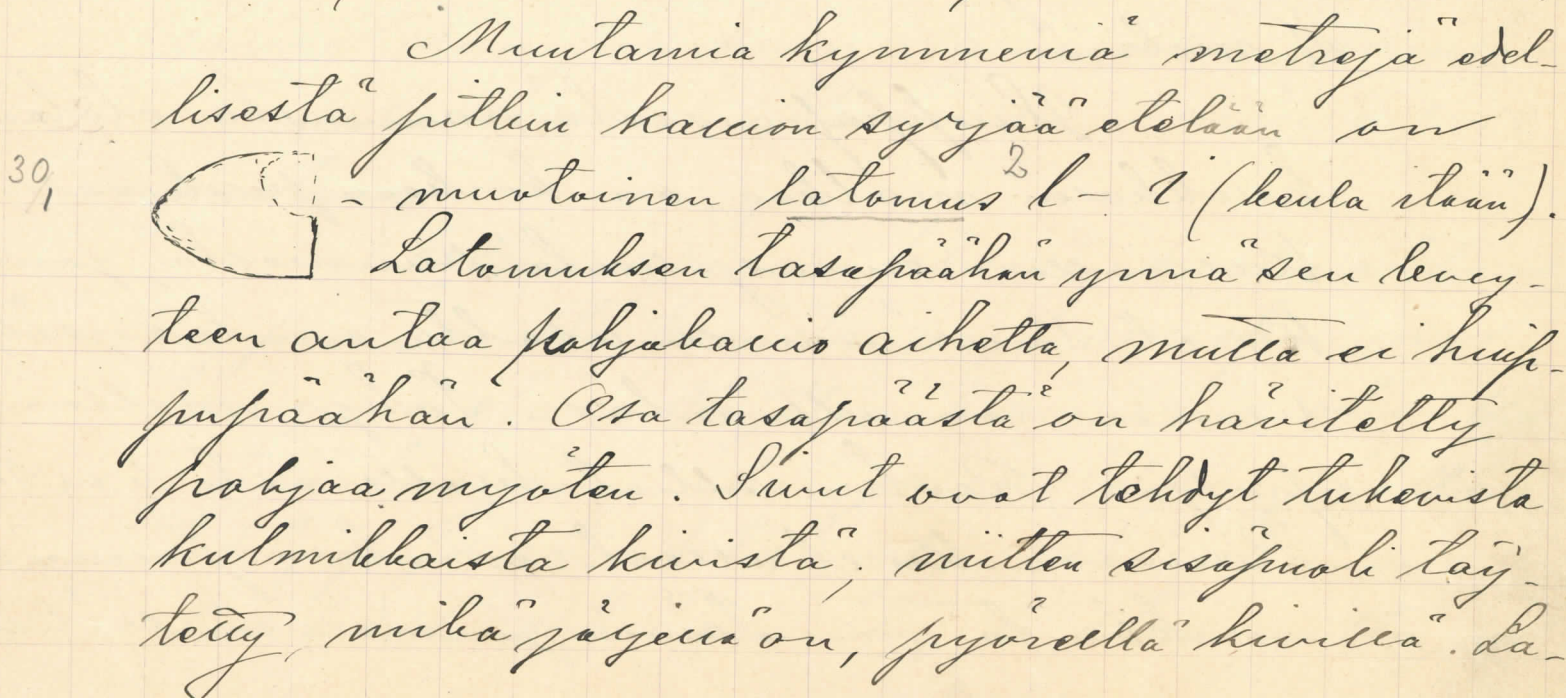 Muutamia kymmeniä metrejä edel-
lisestä pitkin kallion syrjää etelään on
30,1 - muotoinen latomus 2 l - i (keula itään).
Latomuksen tasapäähän ynnä sen levey-
teen antaa pohjakallio aihetta, mutta ei huip-
pupäähän. Osa tasapäästä on hävitetty
pohjaa myöten. Sivut ovat tehdyt tukevista
kulmikkaista kivistä; niitten sisäpuoli täy-
tetty, mikä jäljellä on, pyöreillä kivillä. La-